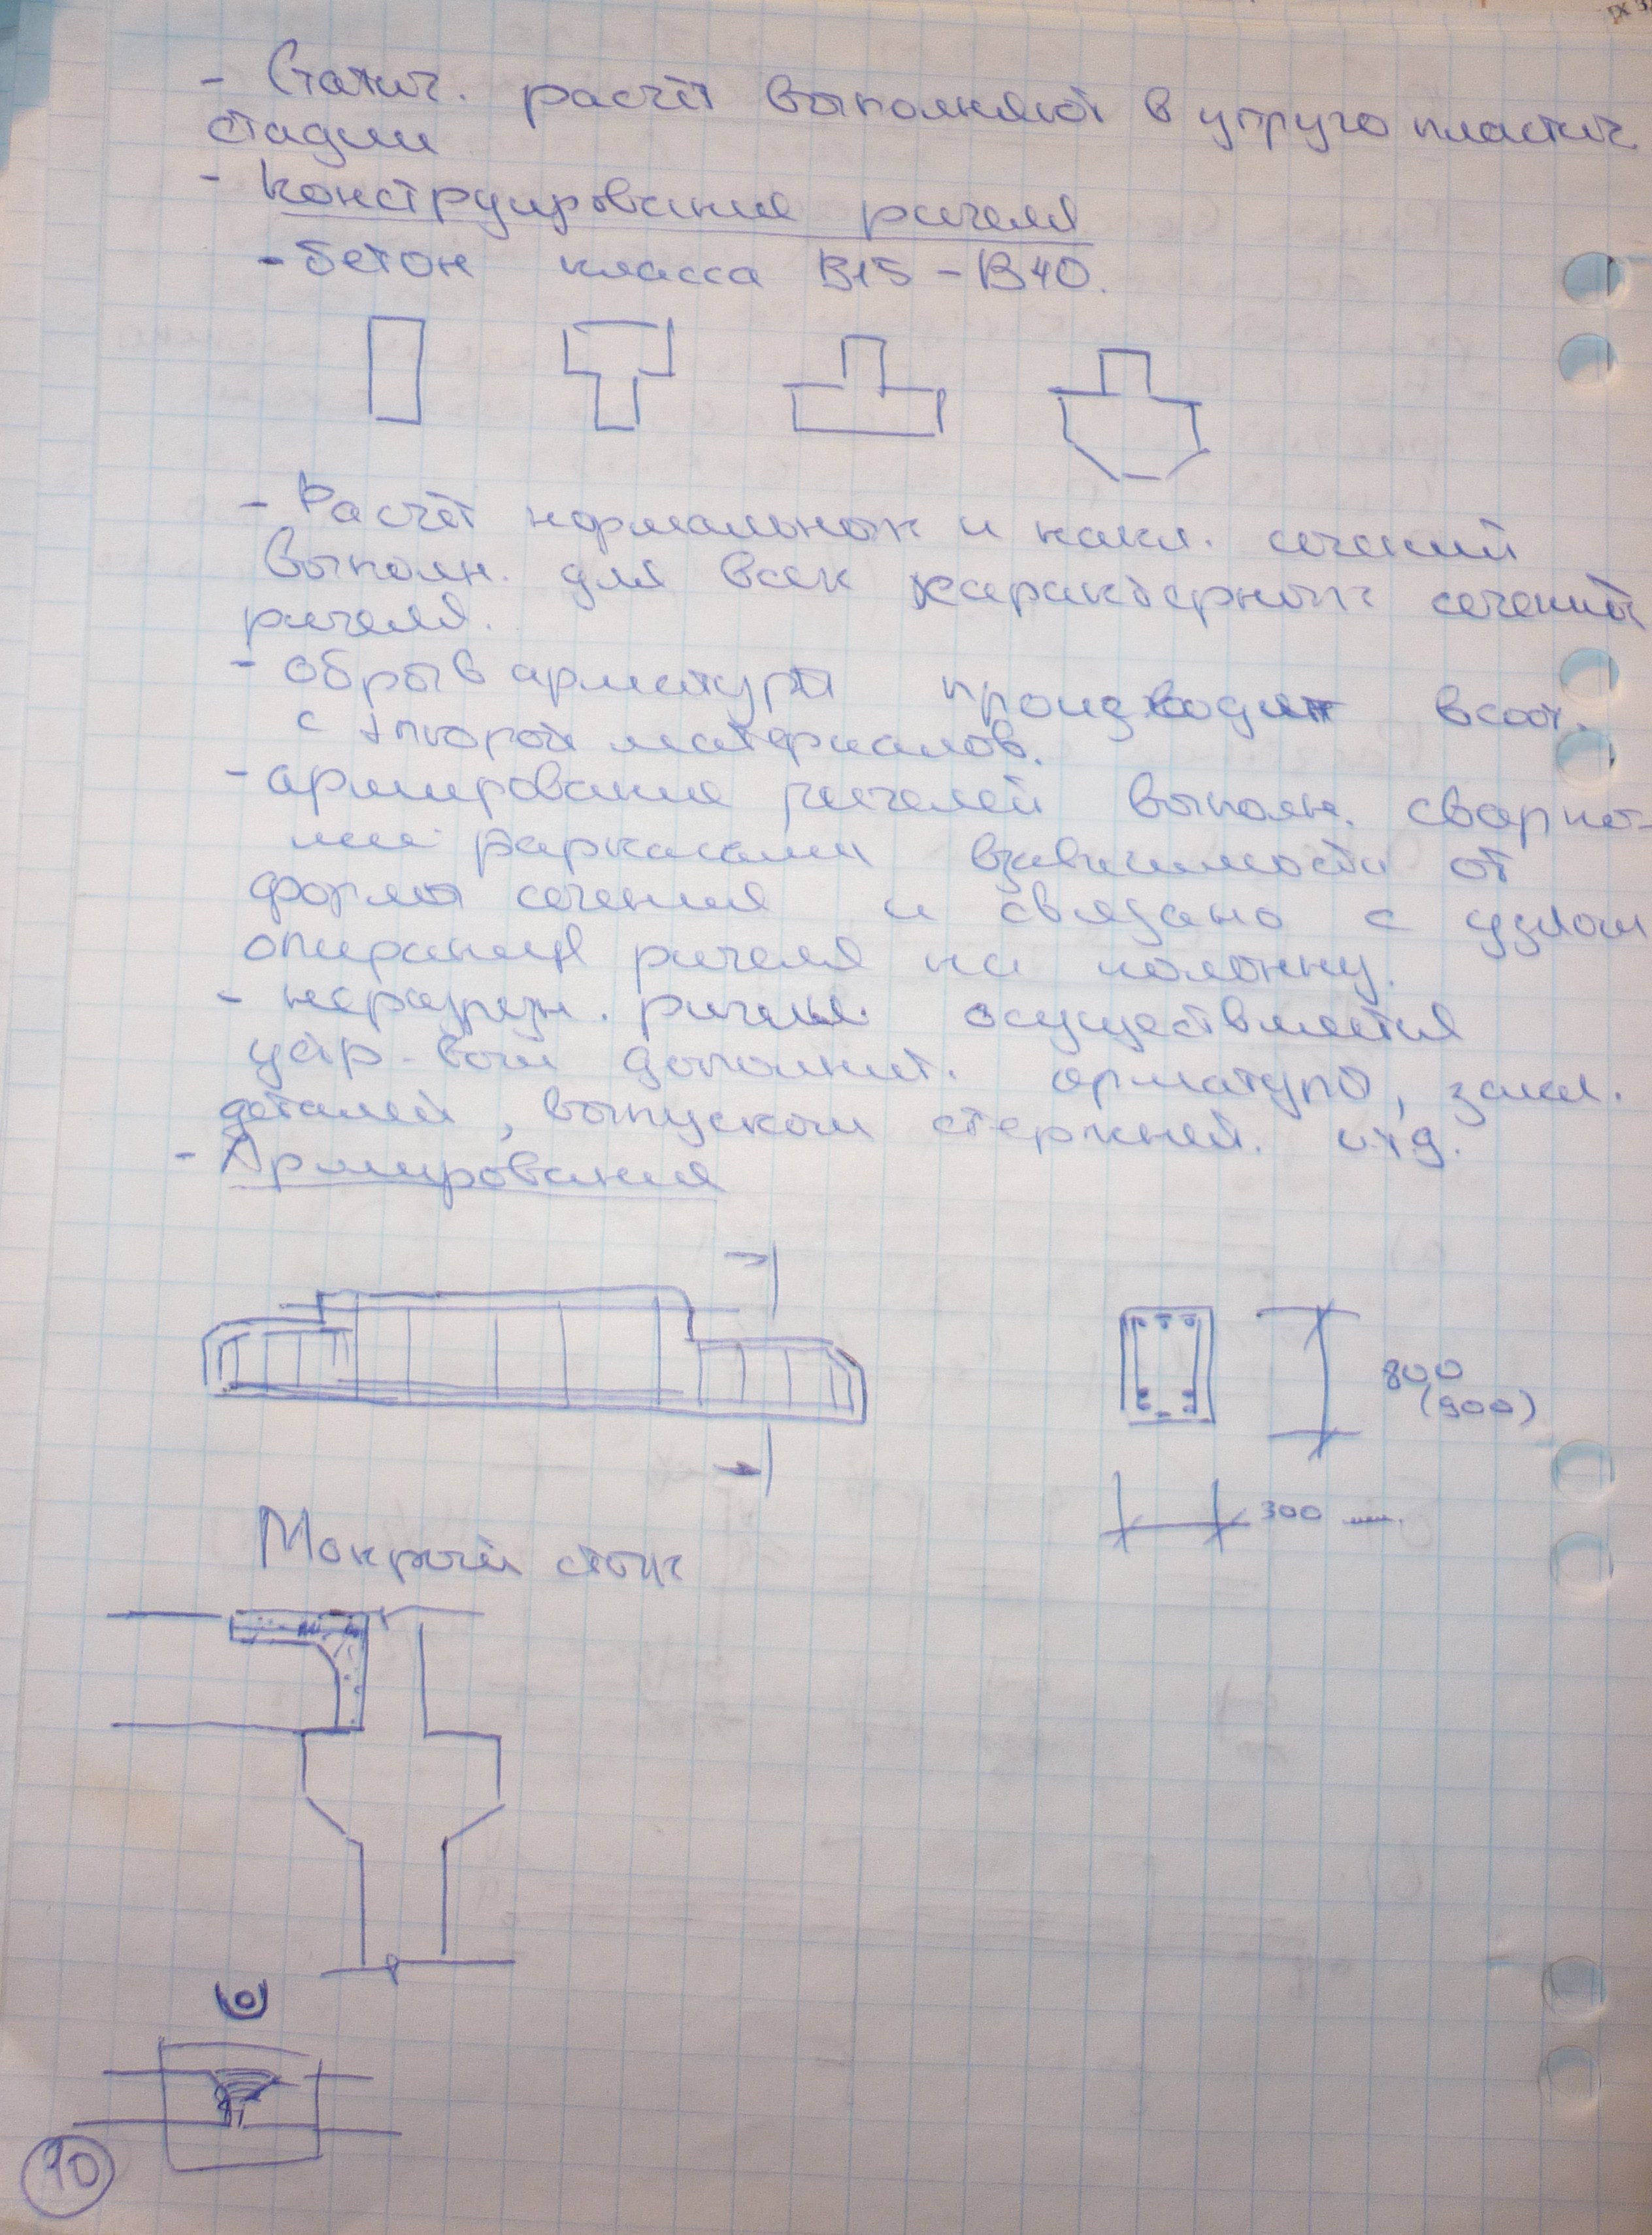 - Статич. расчёт выполняют в упруго пластич.
стадии
- Конструирование ригеля
- бетон класса В15 - В40.
- Расчёт нормальных и накл. сечений
Выполн. для всех характерных сечений
ригеля.
- обрыв арматуры производят в соот.
с эпюрой материалов.
- армирование ригелей выполн. сварны-
ми каркасами в зависимости от
формы сечения и связано с узлом
опирания ригеля на колонну.
- неразрезн. ригеля осуществляется
устр-вом дополнит. арматуры, закл.
деталей, выпуском стержней. и т д.
- Армирование
800
(900)
300 мм.
Мокрый стык
10